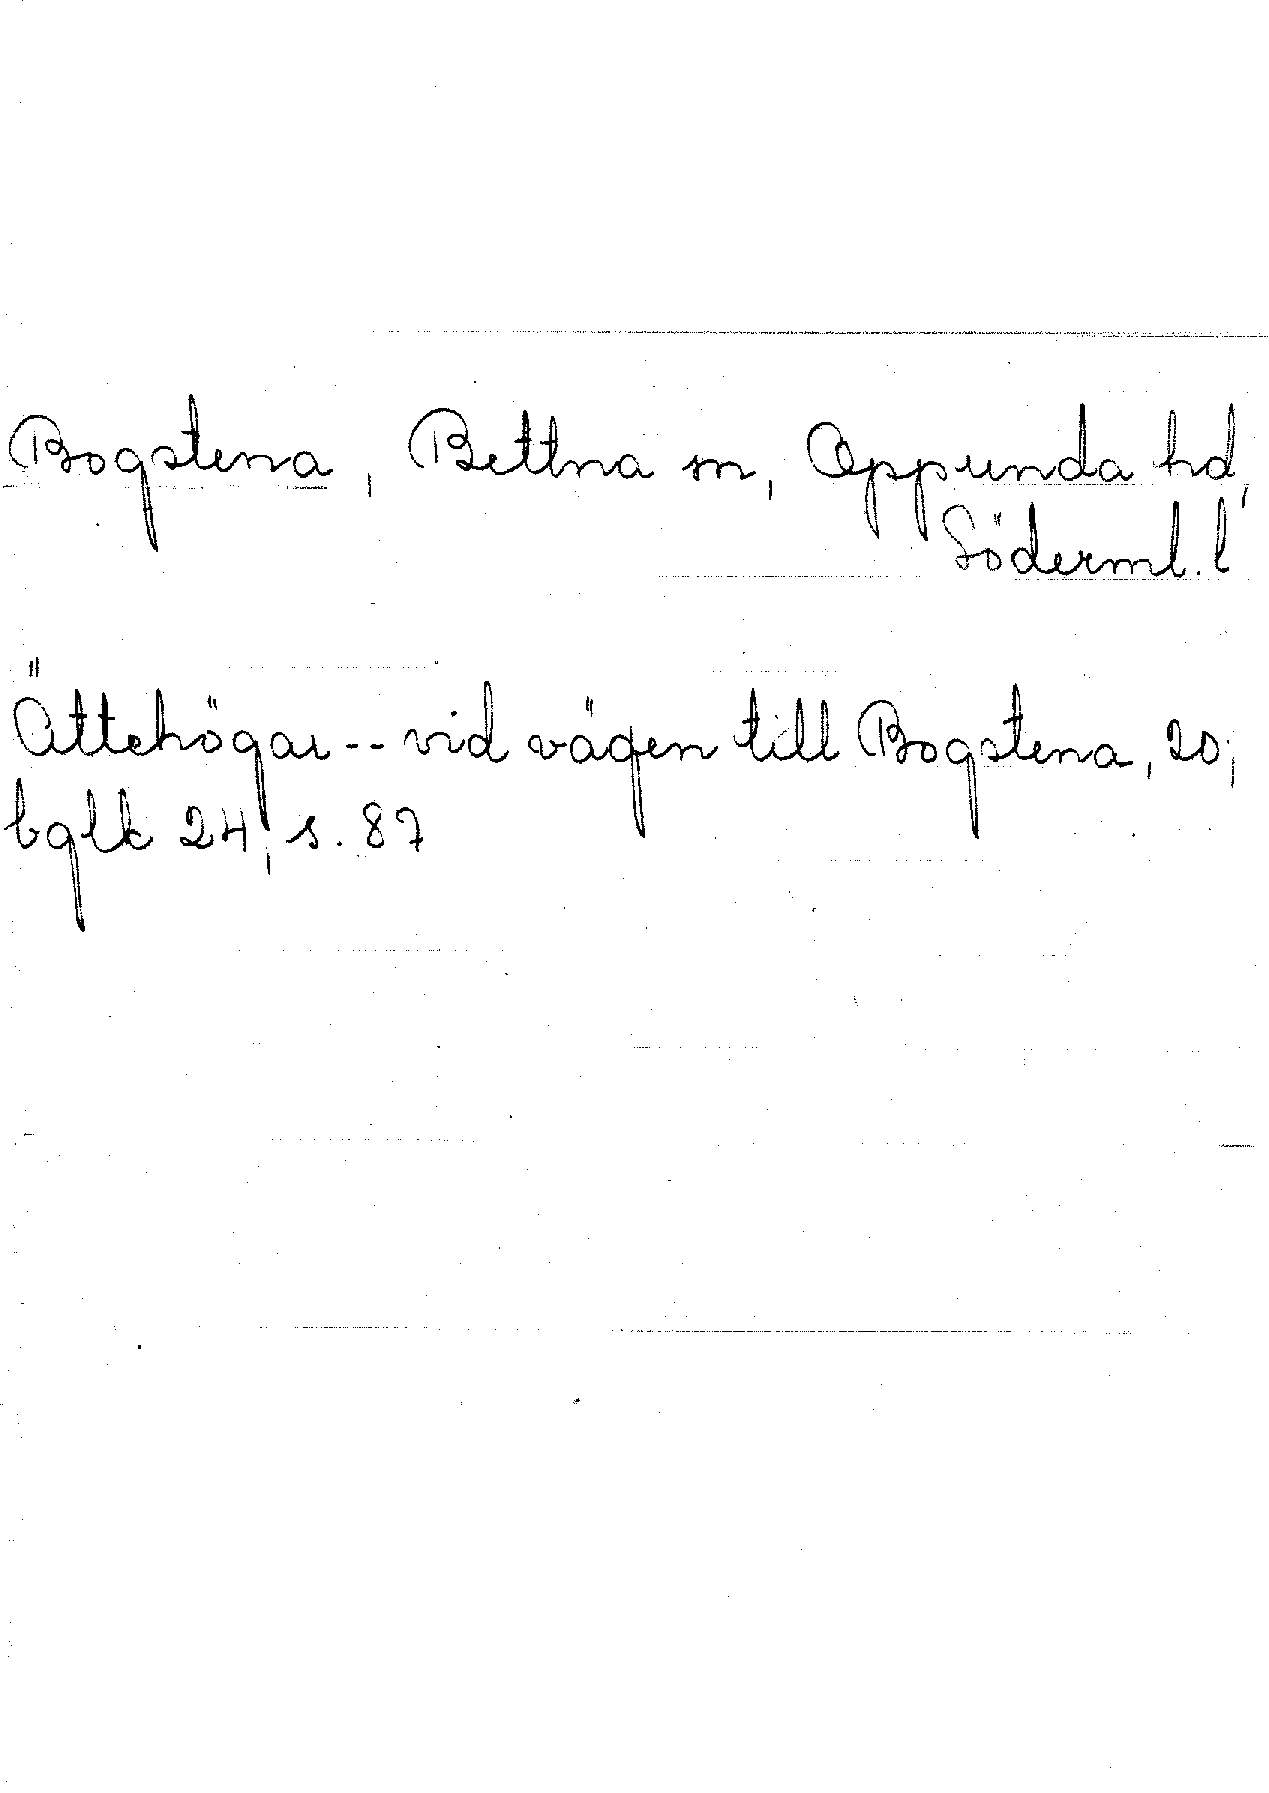 Bogstena, Bettna sn, Oppunda hd,
Söderml. l
Ättehögar -- vid vägen till Bogstena, 20;
bglk 24, s. 87